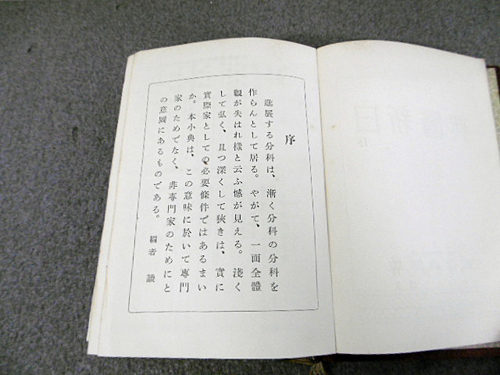 序
進展する分科は、漸く分科の分科を
作らんとして居る。やがて、一面全體
觀が失はれ樣と云ふ憾が見える。淺く
して弘く、且つ深くして狹きは、實に
實際家としての必要條件ではあるまい
か。本小典は、この意味に於いて專門
家のためでなく、非專門家のためにと
の意圖にあるものである。
編者 識